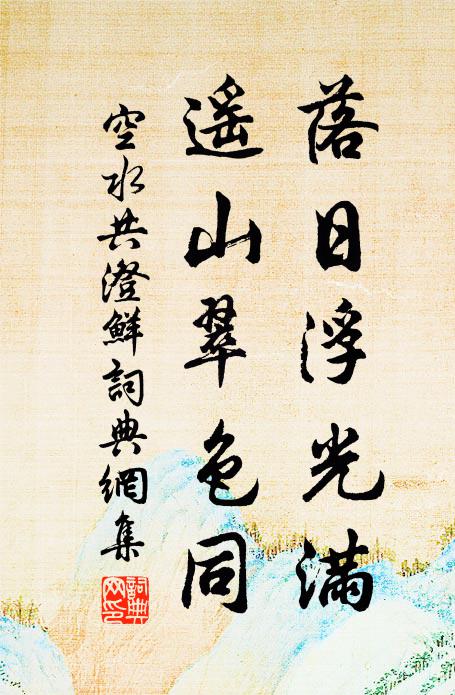 落日浮光滿
遥山翠色同
空水共澄鮮詞典網集
詞典網印